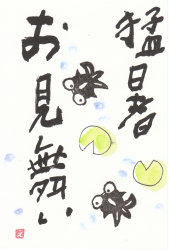 猛暑
お見舞い